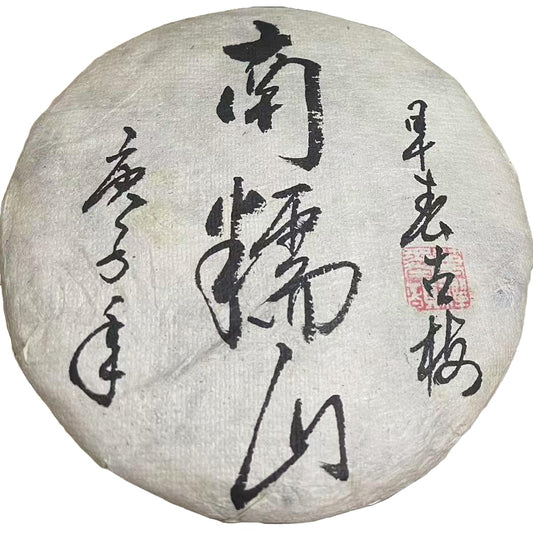 早春古树
南糯山
庚子年